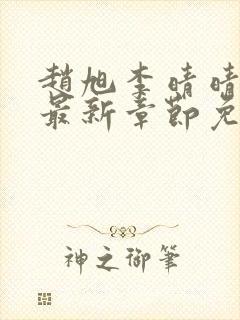 趙旭李晴晴
最新章節免
神之御筆